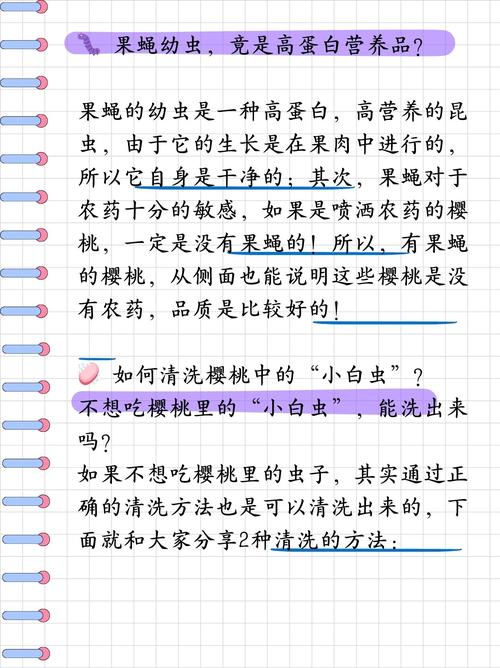 果蝇幼虫，竟是高蛋白营养品？
果蝇的幼虫是一种高蛋白，高营养的昆
虫，由于它的生长是在果肉中进行的，
所以它自身是干净的；其次，果蝇对于
农药十分的敏感，如果是喷洒农药的樱
桃，一定是没有果蝇的！所以，有果蝇
的樱桃，从侧面也能说明这些樱桃是没
有农药，品质是比较好的！
如何清洗樱桃中的“小白虫”？
不想吃樱桃里的“小白虫”，能洗出来
吗？
如果不想吃樱桃里的虫子，其实通过正
确的清洗方法也是可以清洗出来的，下
面就和大家分享2种清洗的方法：